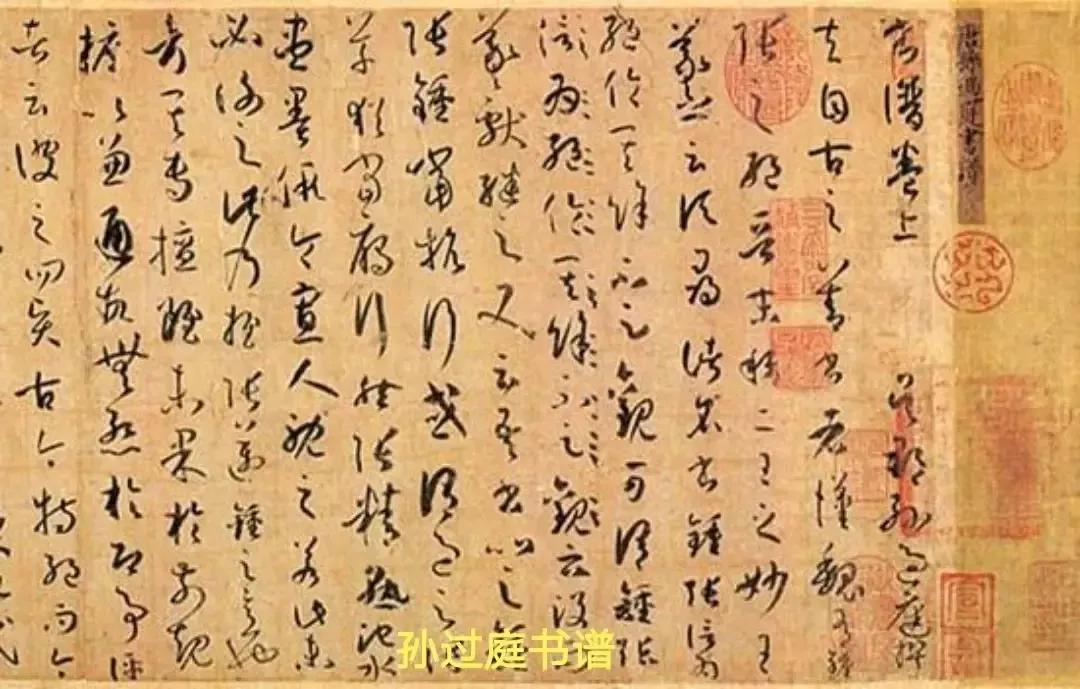 唐孫過庭書譜
書譜卷上 吳郡孫過庭撰
夫自古之善書者漢魏有鍾
張之絕晉末稱二王之妙王
羲之云頃尋諸名書鍾張信為
絕倫其餘不足觀可謂鍾張
信為絕倫其餘不足觀云沒
而羲獻繼之又云吾書比之鍾
張鍾當抗行或謂過之張
草猶當鴈行然張精熟池水
盡墨假令寡人耽之若此未
必謝之此乃推張邁鍾之意也
考其專擅雖未果於前規
摭以兼通故無慚於即事評
者云彼之四賢古今特絕而今
孙过庭书谱